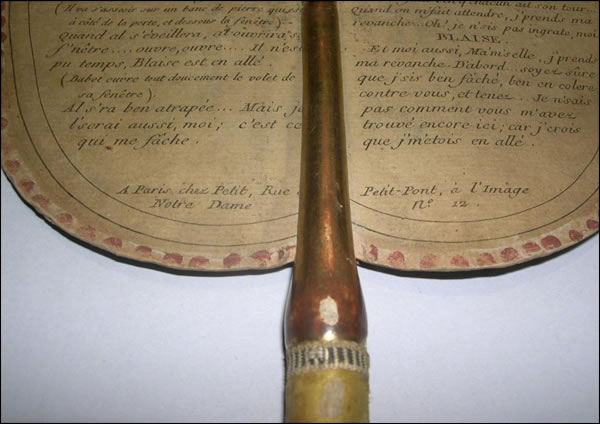 (Il va s'assoir sur un banc de pierre, qui
à côté de la porte, et dessous la fenêtre)
Quand al s'éveillera, al ouvrira
f'nêtre.... ouvre, ouvre.... Il n'est
pu temps, Blaise est en allé.
(Babet ouvre tout doucement le volet de
sa fenêtre).
Al s'ra ben atrapée... Mais je
l'serai aussi, moi; c'est ce
qui me fâche.
chacun ait son tour.
Quand on m'fait attendre, j'prends ma
r'evanche.. Oh! je n'sis pas ingrate, moi
BLAISE.
Et moi aussi, Ma'ms'elle, j'prends
ma revanche. D'abord.... soyez sûre
que j'sis ben fâché, ben en colere
contre vous, et tenez.. Je n'sais
pas comment vous m'avez
trouvé encore ici; car j'crois
que j'm'étois en allé.
A Paris, chez Petit, Rue Petit-Pont, à l'Image
Notre Dame N.º 12.